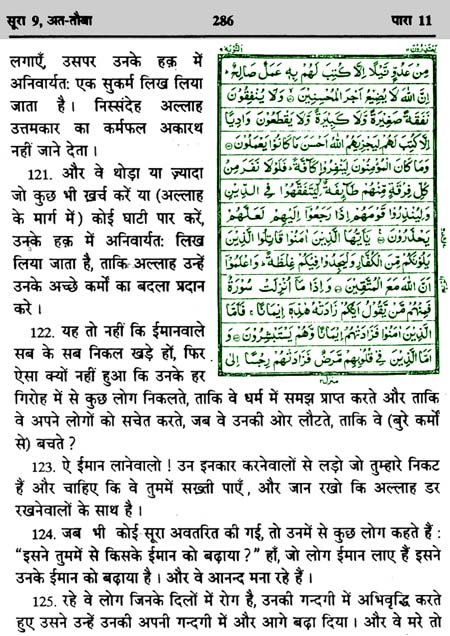 सूरा 9, अत-तौबा 286 पारा 11
लगाएँ, उसपर उनके हक़ में
अनिवार्यत: एक सुकर्म लिख लिया
जाता है। निस्संदेह अल्लाह
उत्तमकार का कर्मफल अकारथ
नहीं जाने देता।
121. और वे थोड़ा या ज़्यादा
जो कुछ भी ख़र्च करें या (अल्लाह
के मार्ग में) कोई घाटी पार करें,
उनके हक़ में अनिवार्यत: लिख
लिया जाता है, ताकि अल्लाह उन्हें
उनके अच्छे कर्मों का बदला प्रदान
करे।
122. यह तो नहीं कि ईमानवाले
सब के सब निकल खड़े हों, फिर
ऐसा क्यों नहीं हुआ कि उनके हर
गिरोह में से कुछ लोग निकलते, ताकि वे धर्म में समझ प्राप्त करते और ताकि
वे अपने लोगों को सचेत करते, जब वे उनकी ओर लौटते, ताकि वे (बुरे कर्मों
से) बचते?
123. ऐ ईमान लानेवालो! उन इनकार करनेवालों से लड़ो जो तुम्हारे निकट
हैं और चाहिए कि वे तुममें सख़्ती पाएँ, और जान रखो कि अल्लाह डर
रखनेवालों के साथ है।
124. जब भी कोई सूरा अवतरित की गई, तो उनमें से कुछ लोग कहते हैं :
“इसने तुममें से किसके ईमान को बढ़ाया?” हाँ, जो लोग ईमान लाए हैं इसने
उनके ईमान को बढ़ाया है। और वे आनन्द मना रहे हैं।
125. रहे वे लोग जिनके दिलों में रोग है, उनकी गन्दगी में अभिवृद्धि करते
हुए उसने उन्हें उनकी अपनी गन्दगी में और आगे बढ़ा दिया। और वे मरे तो
يعتذرون ١١ التوبة ٩
مِنْ عَدُوٍّ نَّيْلًا إِلَّا كُتِبَ لَهُمْ بِهِ عَمَلٌ صَالِحٌ
إِنَّ اللهَ لَا يُضِيعُ أَجْرَ الْمُحْسِنِينَ وَلَا يُنْفِقُونَ
نَفَقَةً صَغِيرَةً وَّلَا كَبِيرَةً وَّلَا يَقْطَعُونَ وَادِيًا
إِلَّا كُتِبَ لَهُمْ لِيَجْزِيَهُمُ اللهُ أَحْسَنَ مَا كَانُوا يَعْمَلُونَ
وَمَا كَانَ الْمُؤْمِنُونَ لِيَنْفِرُوا كَافَّةً فَلَوْلَا نَفَرَ مِنْ
كُلِّ فِرْقَةٍ مِّنْهُمْ طَائِفَةٌ لِّيَتَفَقَّهُوا فِي الدِّينِ
وَلِيُنْذِرُوا قَوْمَهُمْ إِذَا رَجَعُوا إِلَيْهِمْ لَعَلَّهُمْ
يَحْذَرُونَ يَا أَيُّهَا الَّذِينَ آمَنُوا قَاتِلُوا الَّذِينَ
يَلُونَكُمْ مِّنَ الْكُفَّارِ وَلْيَجِدُوا فِيكُمْ غِلْظَةً وَاعْلَمُوا
أَنَّ اللهَ مَعَ الْمُتَّقِينَ وَإِذَا مَا أُنْزِلَتْ سُورَةٌ
فَمِنْهُمْ مَّنْ يَقُولُ أَيُّكُمْ زَادَتْهُ هَذِهِ إِيمَانًا فَأَمَّا
الَّذِينَ آمَنُوا فَزَادَتْهُمْ إِيمَانًا وَّهُمْ يَسْتَبْشِرُونَ
وَأَمَّا الَّذِينَ فِي قُلُوبِهِمْ مَّرَضٌ فَزَادَتْهُمْ رِجْسًا إِلَى